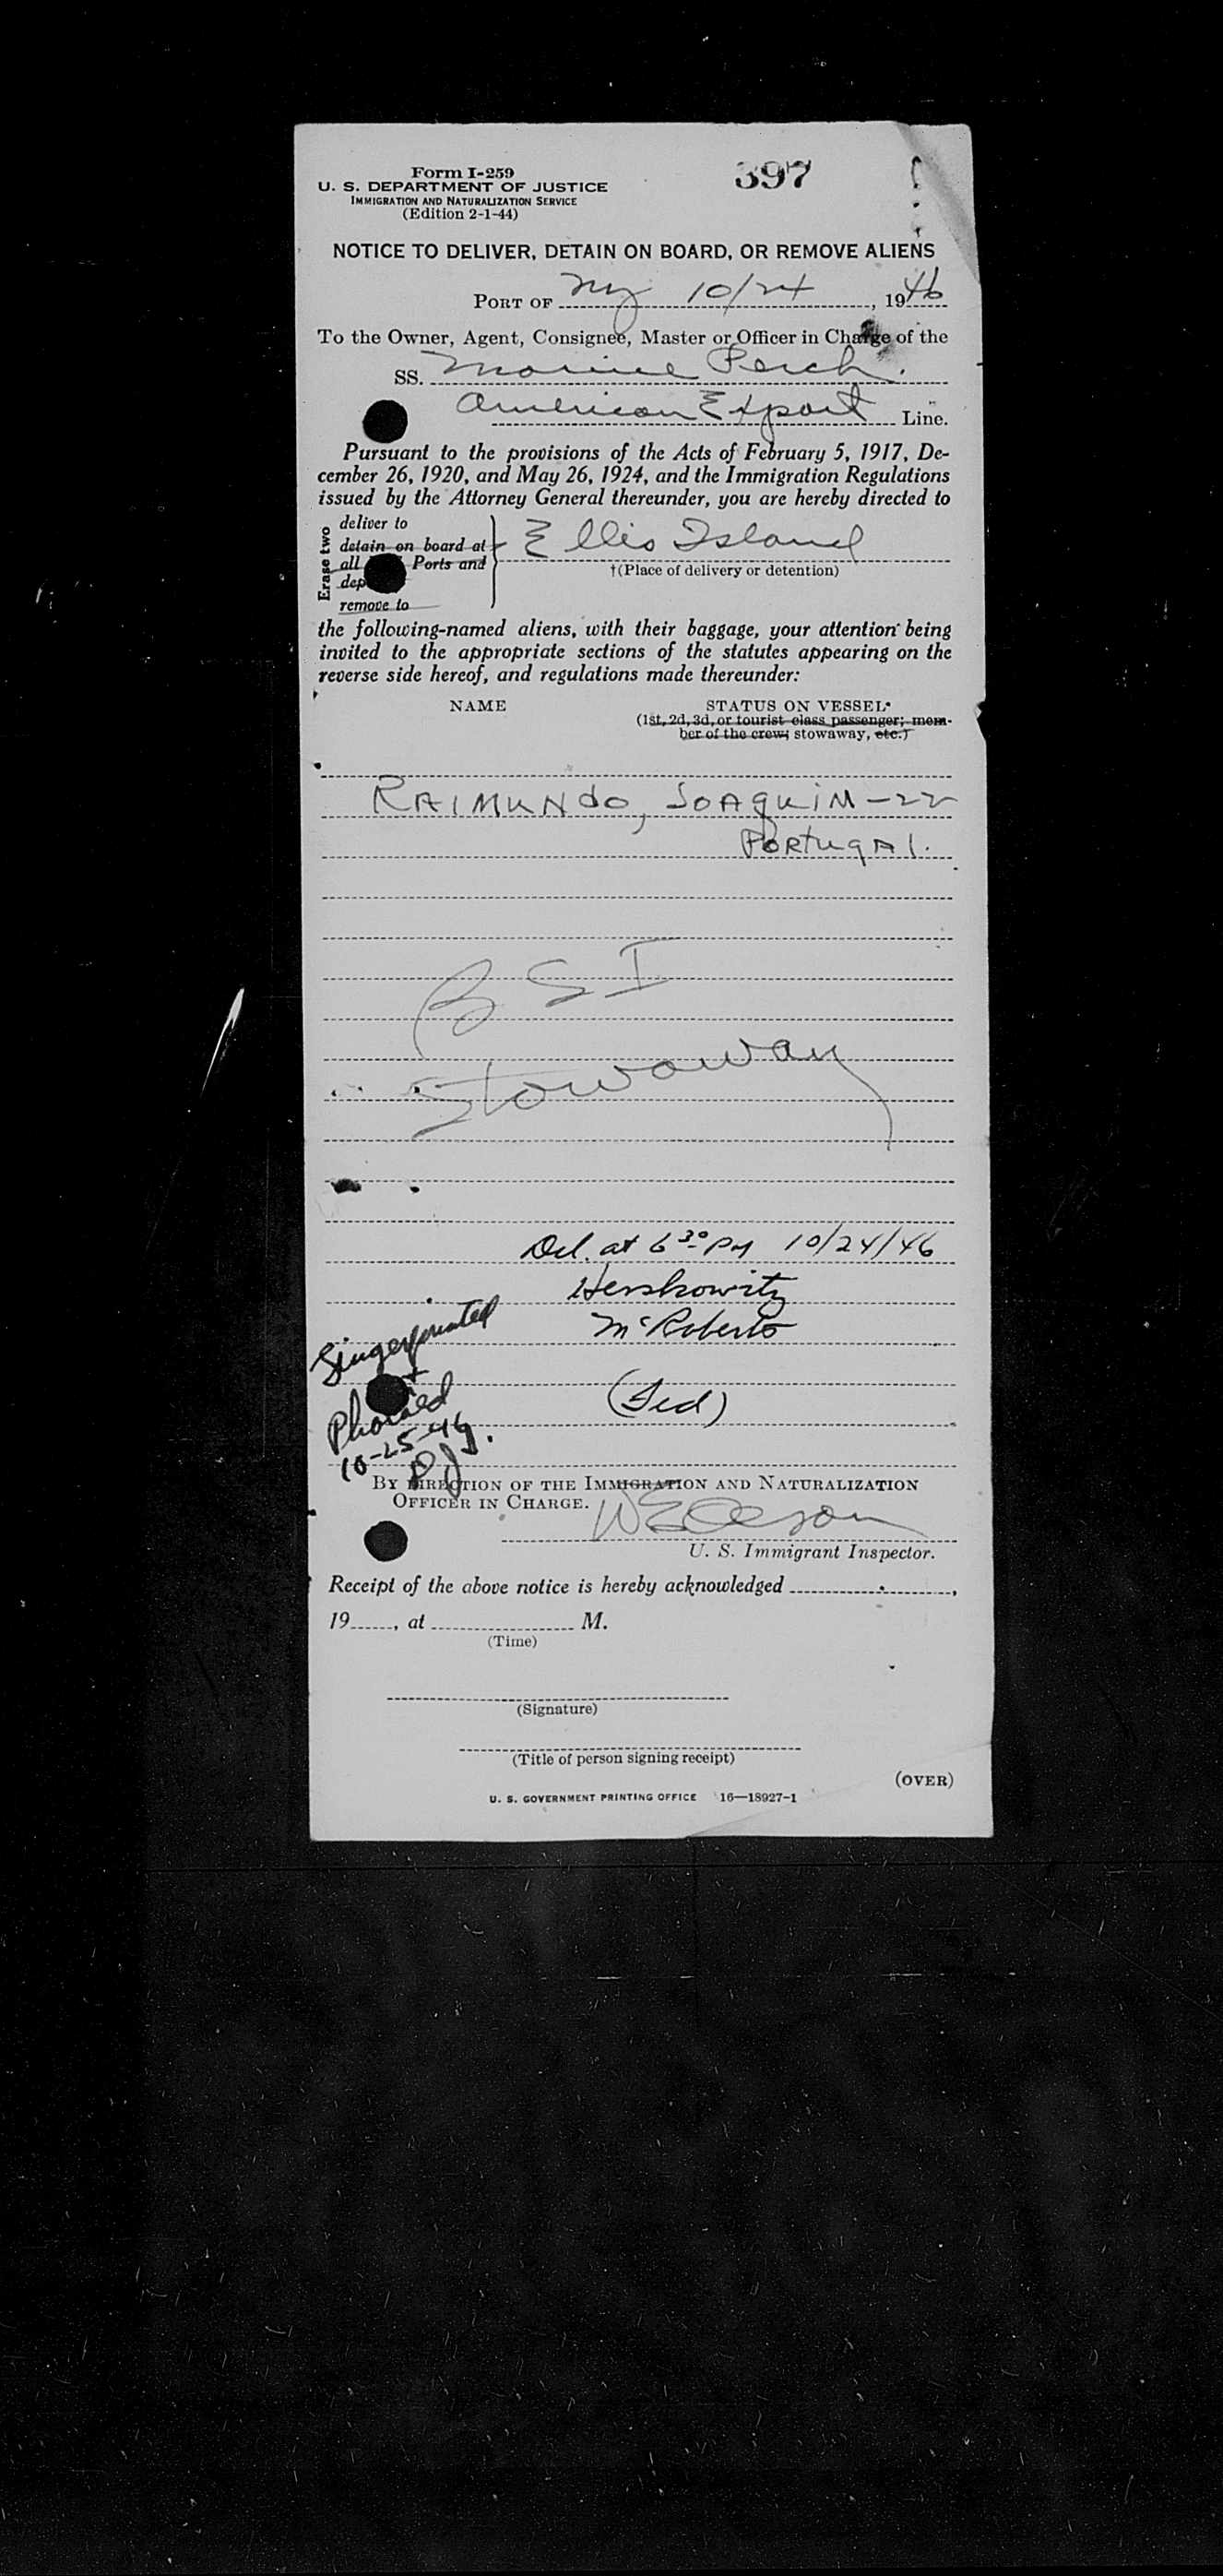 Form I-259
397
U. S. DEPARTMENT OF JUSTICE
IMMIGRATION AND NATURALIZATION SERVICE
(Edition 2-1-44)
NOTICE TO DELIVER, DETAIN ON BOARD, OR REMOVE ALIENS
PORT OF NY 10/24, 1946
To the Owner, Agent, Consignee, Master or Officer in Charge of the
SS. Marine Perch.
American Export Line.
Pursuant to the provisions of the Acts of February 5, 1917, De-
cember 26, 1920, and May 26, 1924, and the Immigration Regulations
issued by the Attorney General thereunder, you are hereby directed to
Erase two
deliver to
detain on board at
all Ports and
dep
remove to
Ellis Island
†(Place of delivery or detention)
the following-named aliens, with their baggage, your attention being
invited to the appropriate sections of the statutes appearing on the
reverse side hereof, and regulations made thereunder:
NAME
STATUS ON VESSEL*
(1st, 2d, 3d, or tourist class passenger; mem-
ber of the crew; stowaway, etc.)
RAIMUNdo, JOAquiM - 22
PORtugAl.
B S I
Stowaway
Del. at 6 30 PM 10/24/46
Hershowitz
McRoberts
Fingerprinted
+
Photoed
10-25-46
(Sed)
BY DIRECTION OF THE IMMIGRATION AND NATURALIZATION
OFFICER IN CHARGE.
U. S. Immigrant Inspector.
Receipt of the above notice is hereby acknowledged ,
19 , at M.
(Time)
(Signature)
(Title of person signing receipt)
(OVER)
U. S. GOVERNMENT PRINTING OFFICE 16—18927-1